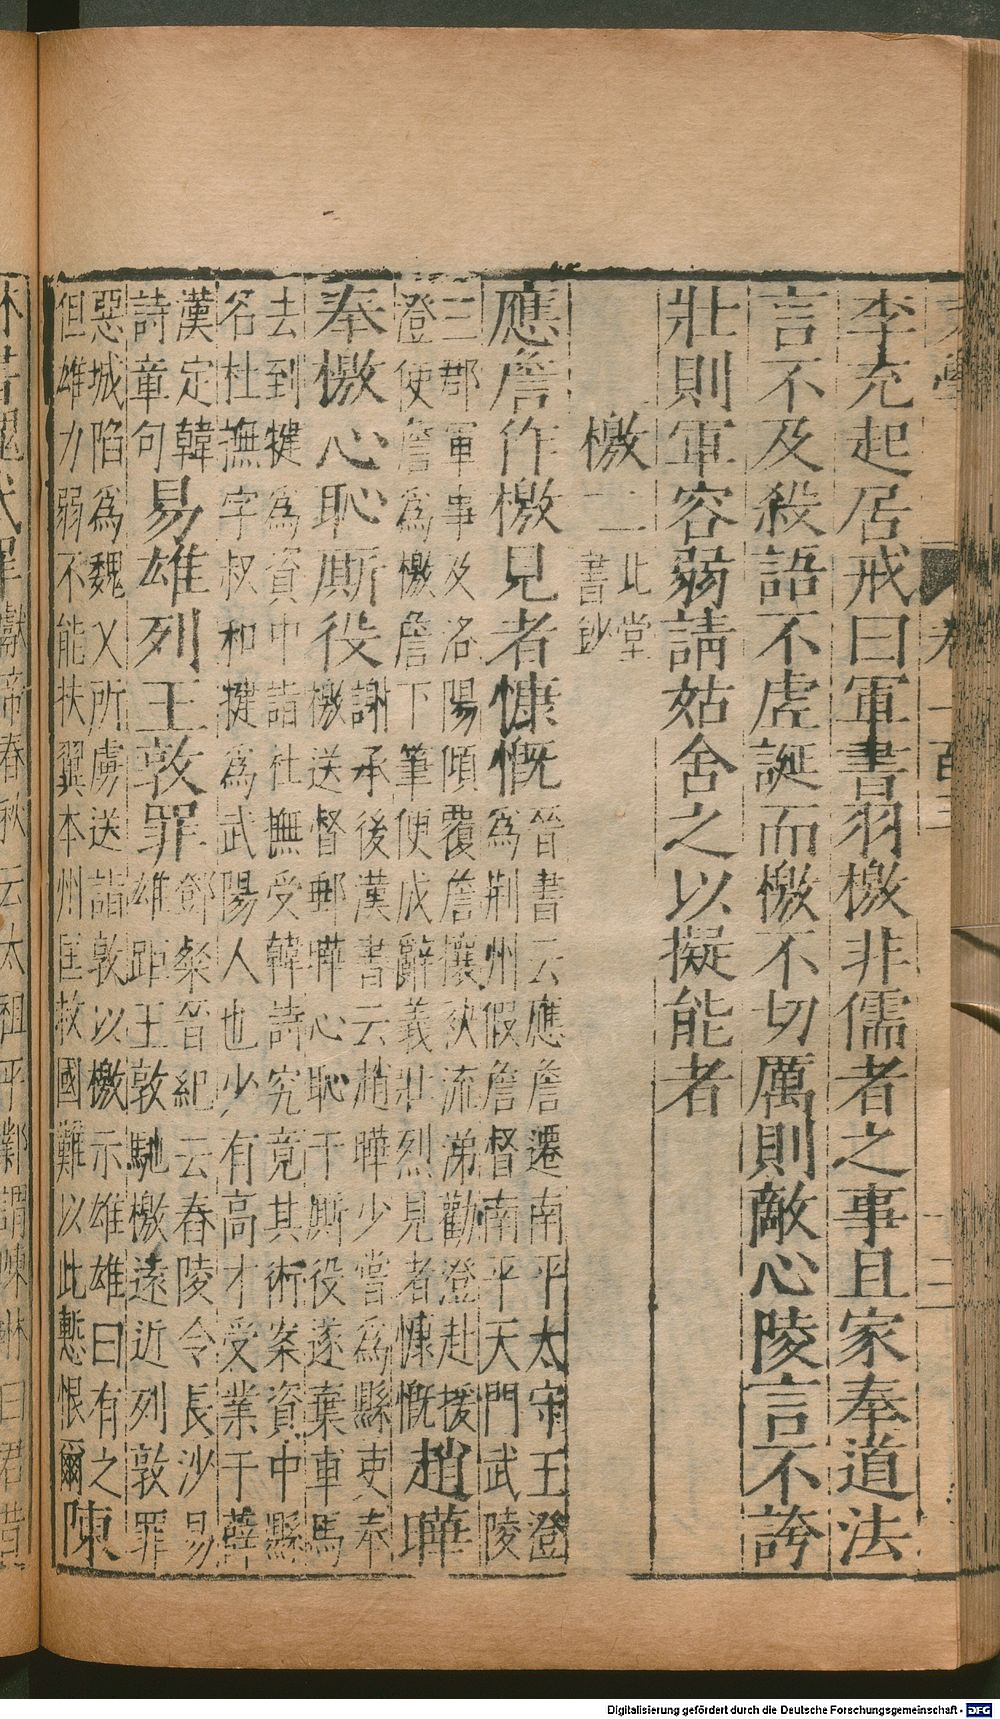 李充起居戒曰軍書羽檄非儒者之事且家奉道法
言不及殺語不虎誕而檄不切厲則敵心陵言不誇
壯則軍容弱請姑舍之以擬能者
檄二
此堂
書鈔
應詹作檄見者慷慨
晉書云應詹遷南平太守王澄
為荊州假詹督南平天門武陵
三郡軍事及洛陽傾覆詹攘袂流涕勸澄赴援
澄使詹為檄詹下筆便成辭義壯烈見者慷慨
趙曄
奉檄心恥廝役
謝承後漢書云趙曄少嘗為縣吏奉
檄送督郵曄心恥于廝役遂棄車馬
去到犍為資中詣杜撫受韓詩究竟其術案資中縣
名杜撫字叔和犍為武陽人也少有高才受業于薛
漢定韓
詩章句
易雄列王敦罪
鄧粲晉紀云舂陵令長沙易
雄距王敦馳檄遠近列敦罪
惡城陷為魏乂所虜送詣敦以檄示雄雄曰有之
但雄力弱不能扶翼本州匡救國難以此慙恨爾
陳
Digitalisierung gefördert durch die Deutsche Forschungsgemeinschaft - DFG